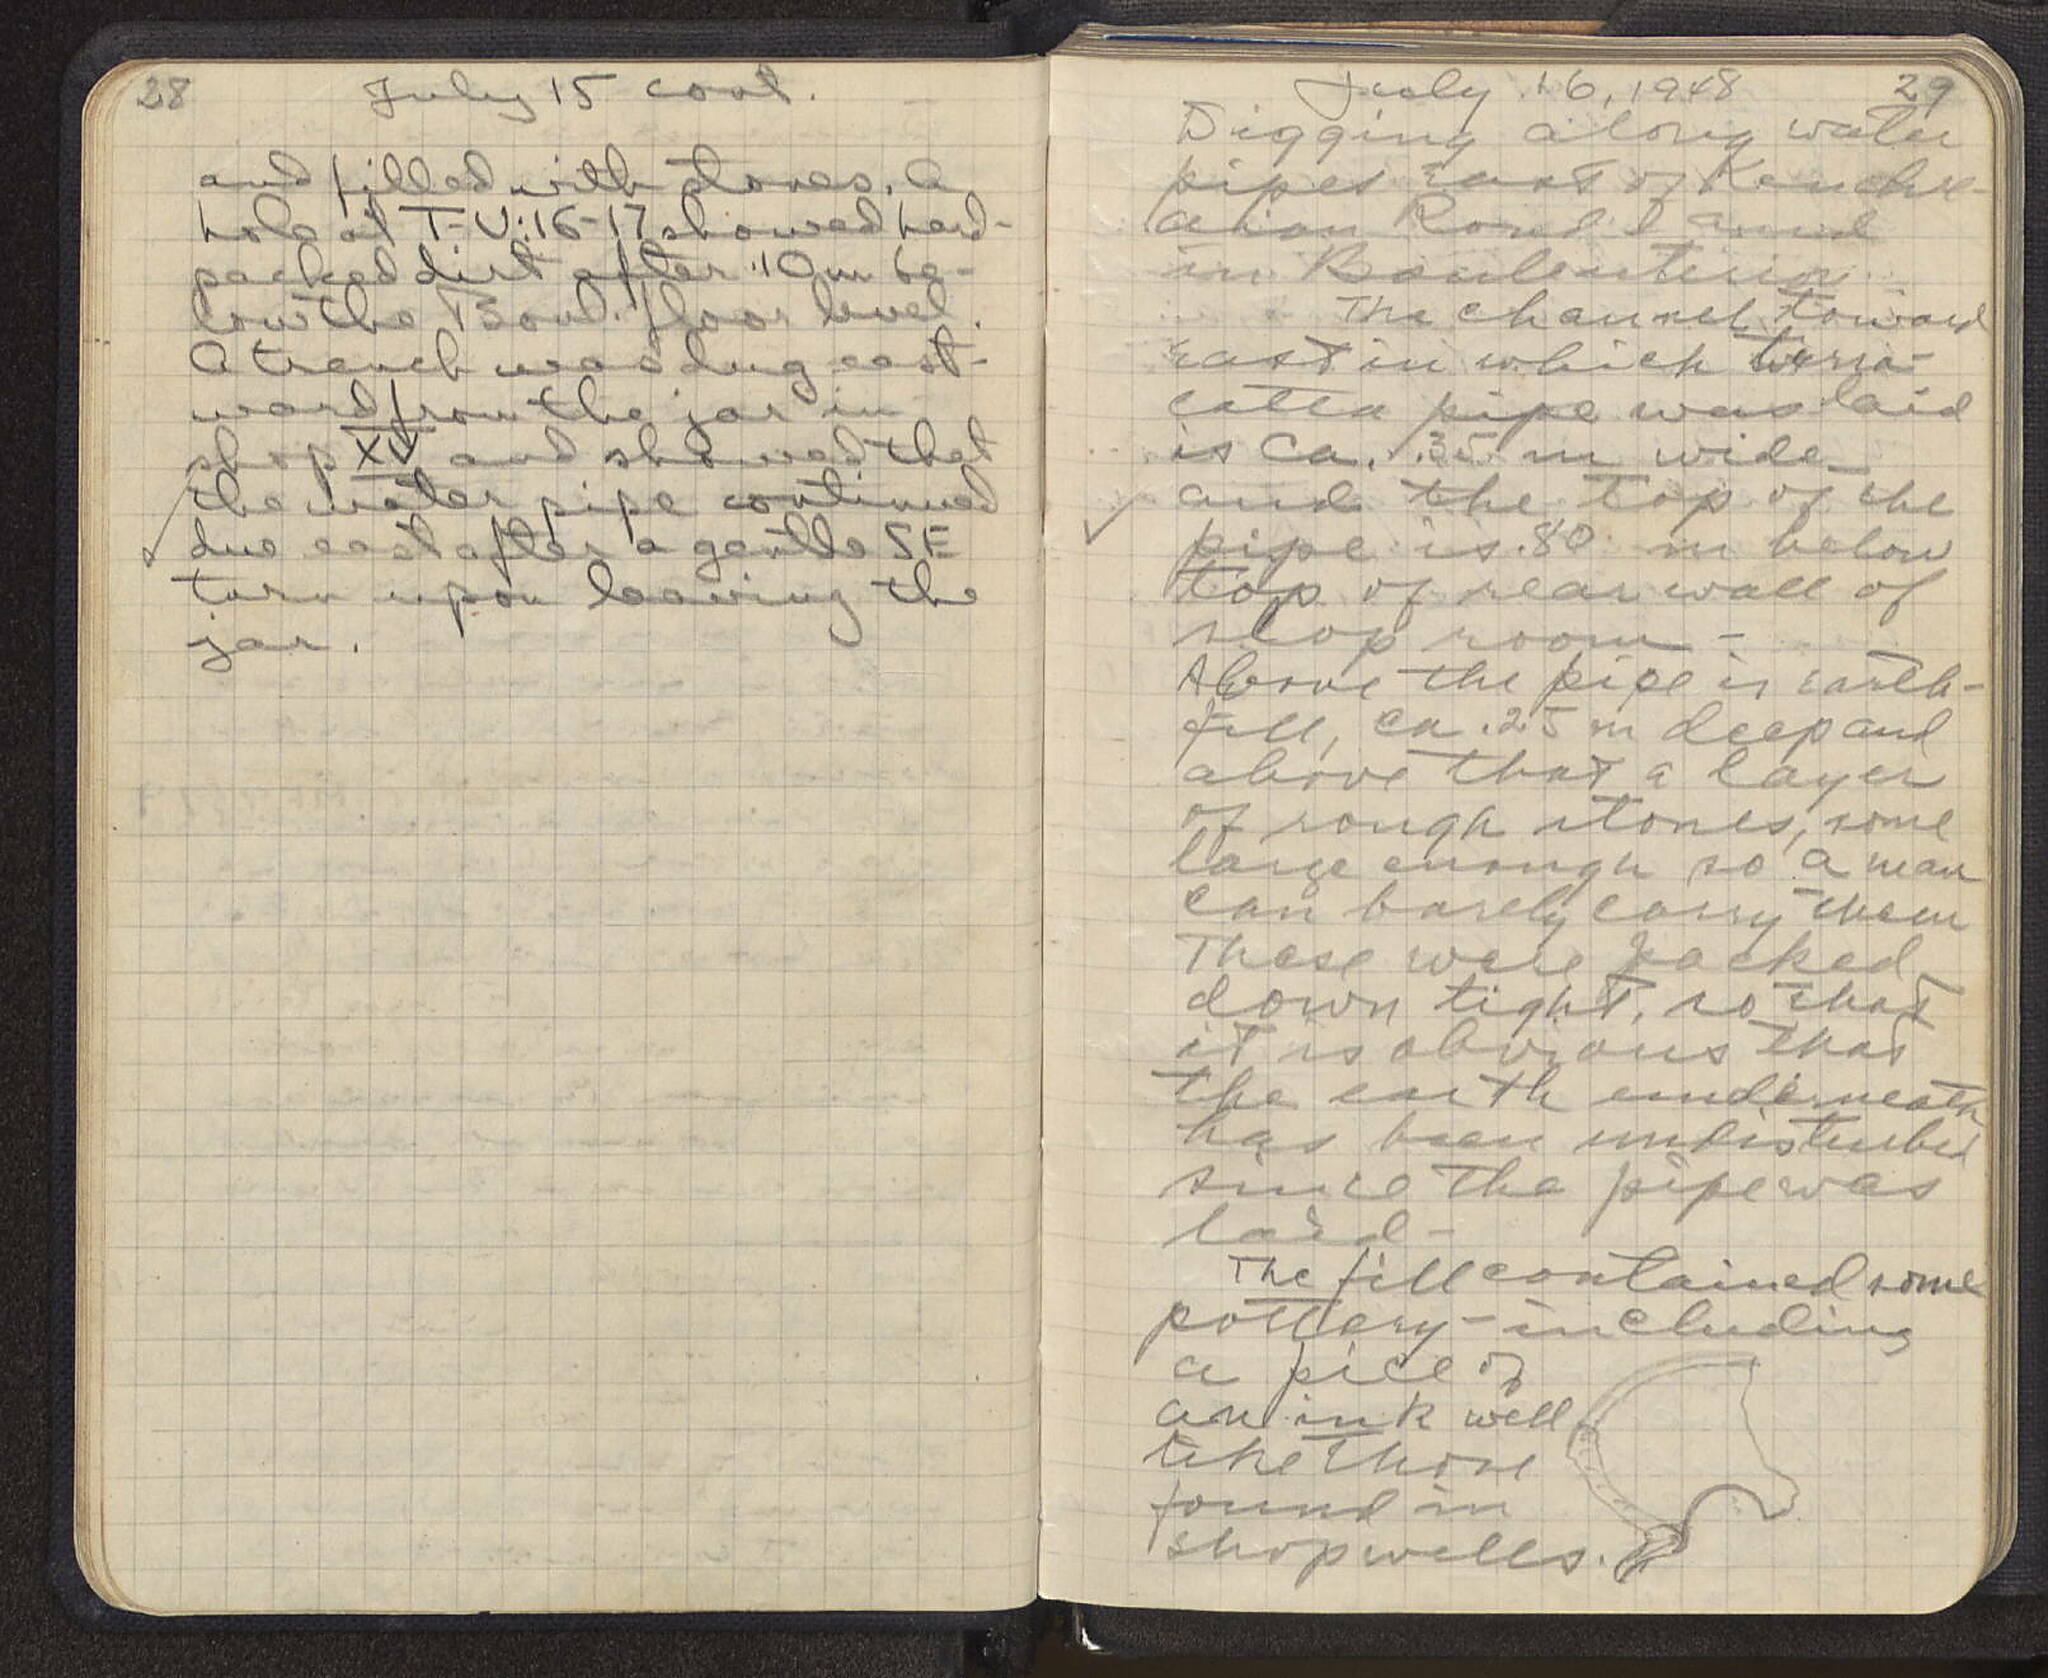 28
July 15 cont.
and filled with stones. A
hole at T-U:16-17 showed hard-
packed dirt after .10m be-
low the Boul. floor level.
A trench was dug east-
ward from the jar in
shop XV and showed that
the water pipe continued
due east after a gentle SE
turn upon leaving the
jar.
July 16, 1948 29
Digging along water
pipes East of Kenchre-
aian Road and
in Bouleuterion
The channel toward
east in which terra-
cotta pipe was laid
is ca. .35 m wide
and the top of the
pipe is .80 m below
top of rear wall of
shop room -
Above the pipe is earth-
fill, ca .25 m deep and
above that a layer
of rough stones, some
large enough so a man
can barely carry them
These were packed
down tight, so that
it is obvious that
the earth underneath
has been undisturbed
since the pipe was
laid -
The fill contained some
pottery - including
a piece of
an ink well
like those
found in
shop wells.